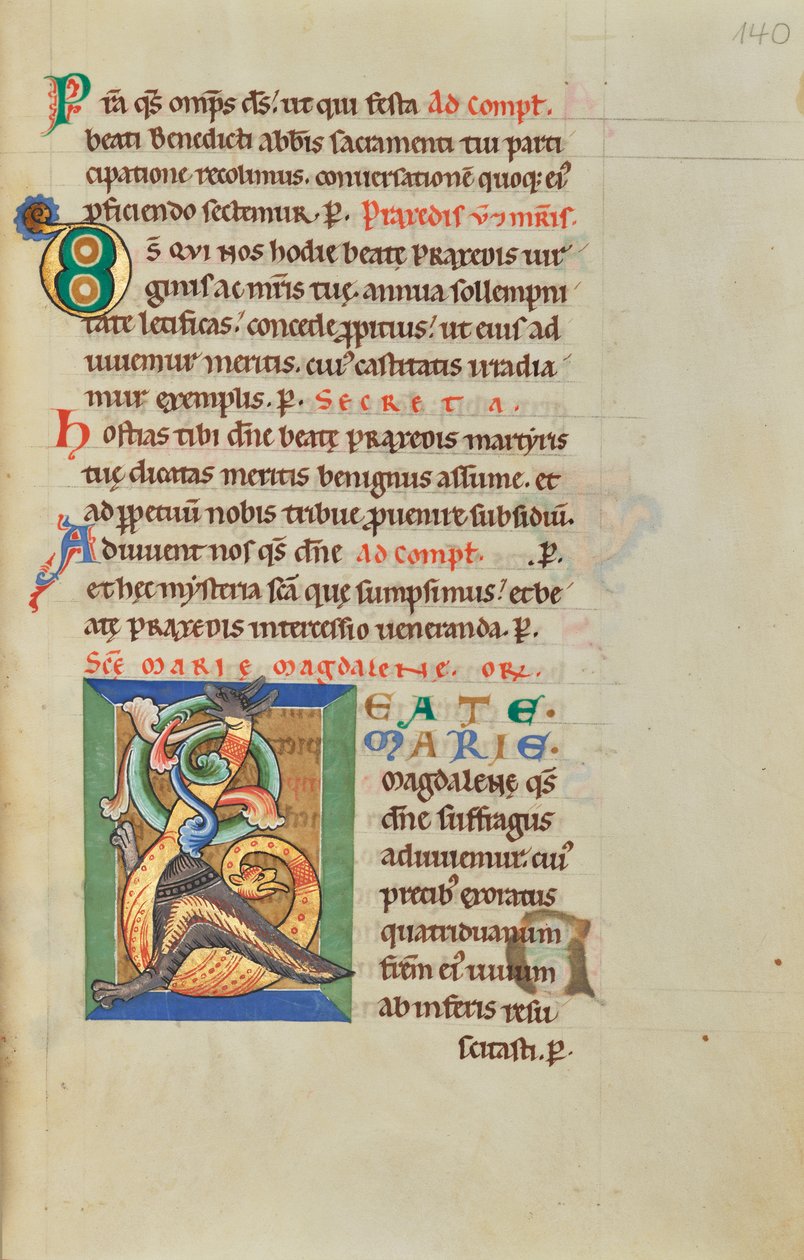 140
P r̄a qs̄ omp̄s ds̄. ut qui festa Ad Compt̄.
beati Benedicti abb̄is sacramenti tui parti
cipatione recolimus. conuersationē quoq; ei᾽
p̱ficiendo sectemur. P. Praxedis v̄ ⁊ mr̄is.
D s̄ QVI NOS hodie beatę PRAXEDIS uir
ginis ac mr̄is tuę. annua sollempni
tate letificas. concede ꝓpitius. ut eius ad
iuuemur meritis. cui᾽ castitatis irradia
mur exemplis. P. SECRETA.
H ostias tibi dn̄e beatę PRAXEDIS martyris
tuę dicatas meritis benignus assume. et
ad ꝑpetuū nobis tribue ꝓuenire subsidiū.
A diuuent nos qs̄ dn̄e Ad Compt̄. .P.
et hęc mysteria sc̄a quę sumpsimus. et be
atę PRAXEDIS intercessio ueneranda. P.
Sc̄e MARIĘ MAGDALENE. OR̄.
B EATE.
MARIE.
MAGDALENĘ qs̄
dn̄e suffragiis
adiuuemur. cui᾽
precib᾽ exoratus
quatriduanum
fr̄em ei᾽ uiuum
ab inferis resu
scitasti. P.